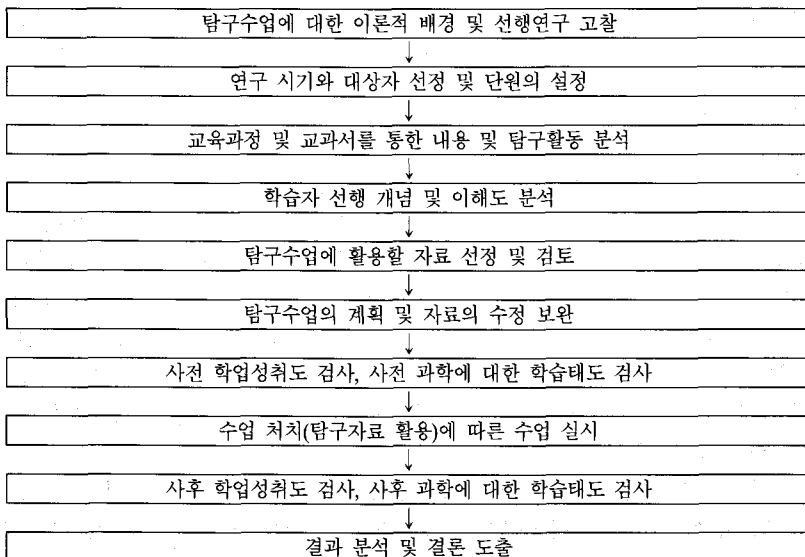 탐구수업에 대한 이론적 배경 및 선행연구 고찰
↓
연구 시기와 대상자 선정 및 단원의 설정
↓
교육과정 및 교과서를 통한 내용 및 탐구활동 분석
↓
학습자 선행 개념 및 이해도 분석
↓
탐구수업에 활용할 자료 선정 및 검토
↓
탐구수업의 계획 및 자료의 수정 보완
↓
사전 학업성취도 검사, 사전 과학에 대한 학습태도 검사
↓
수업 처치(탐구자료 활용)에 따른 수업 실시
↓
사후 학업성취도 검사, 사후 과학에 대한 학습태도 검사
↓
결과 분석 및 결론 도출